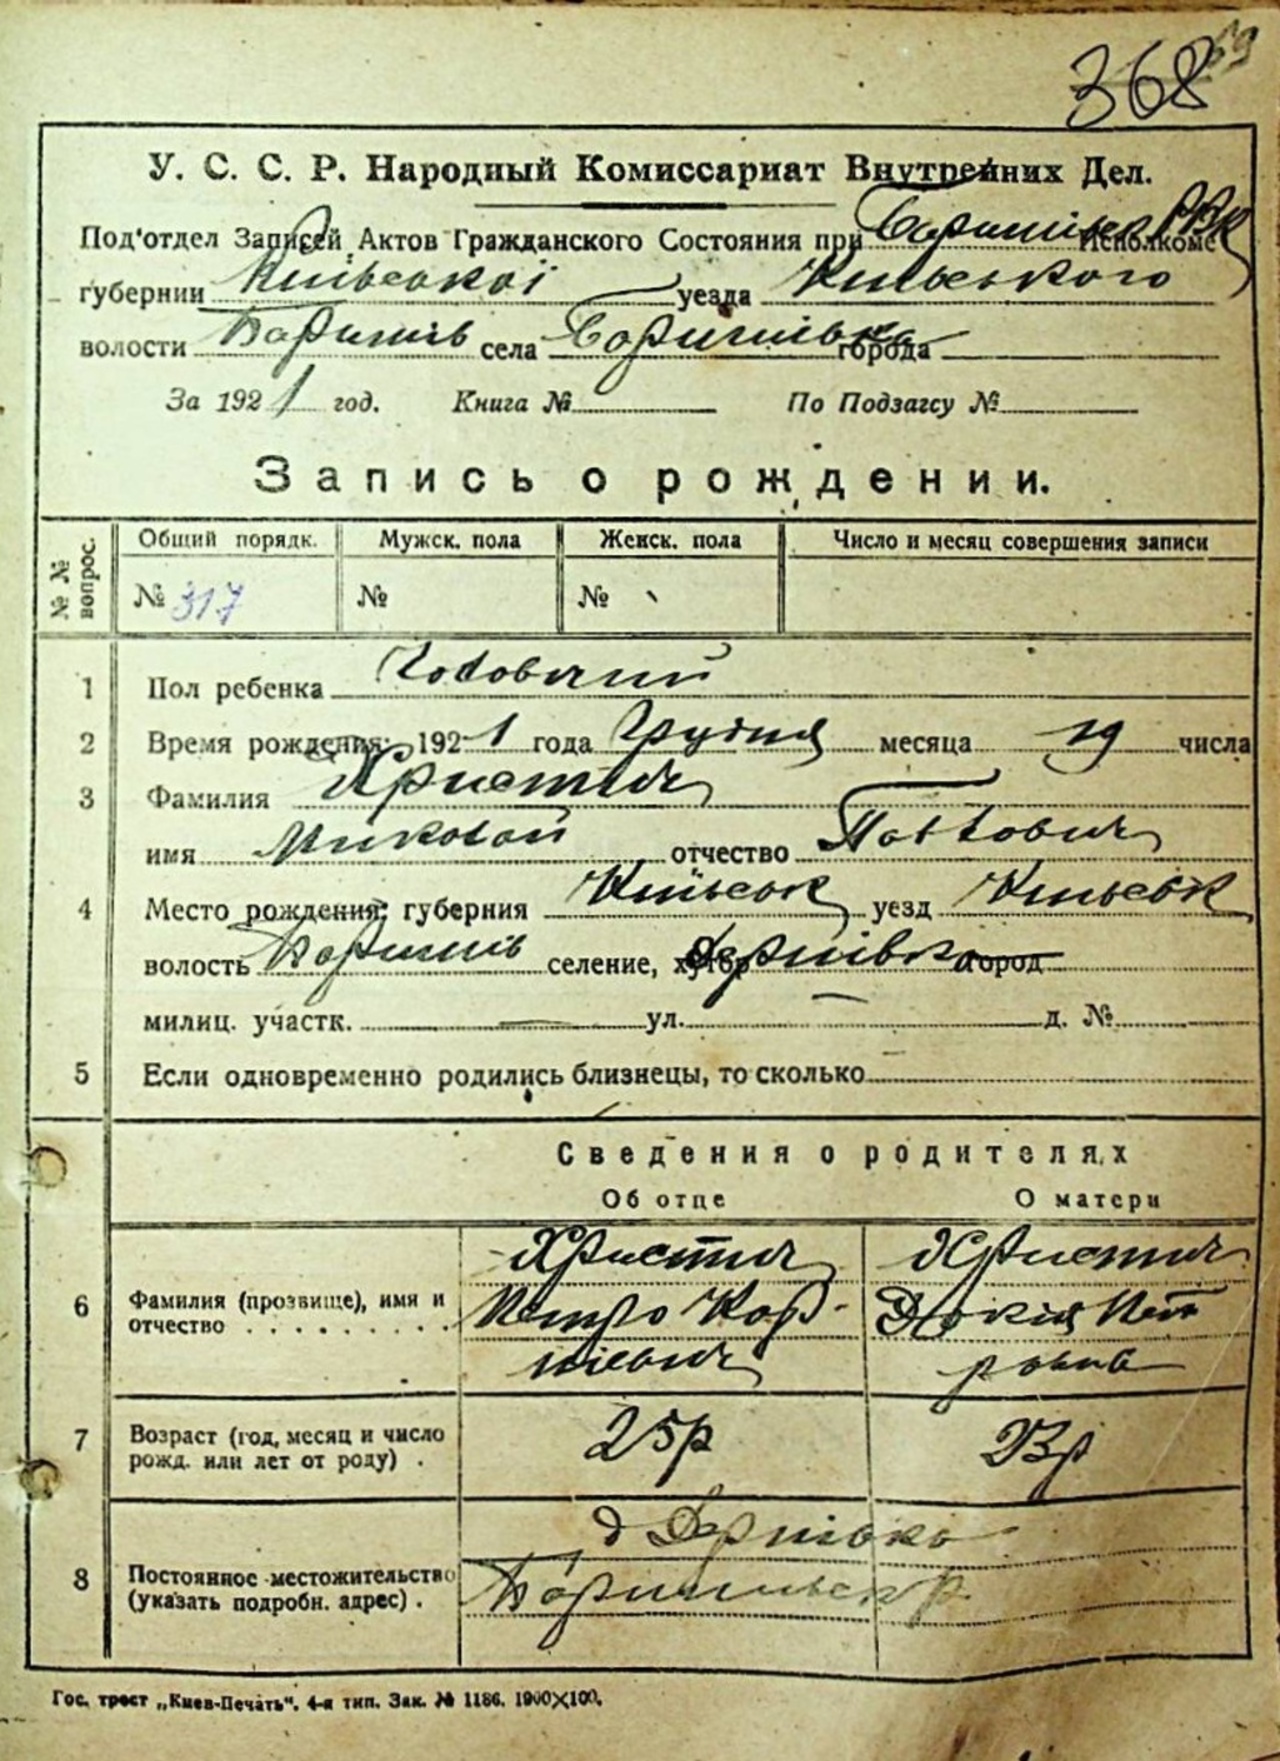 368
69
У. С. С. Р. Народный Комиссариат Внутренних Дел.
Под'отдел Записей Актов Гражданского Состояния при Баришівск РВК Исполкоме
губернии Київської уезда Київського
волости Баришів села Баришівка города
За 1921 год. Книга № По Подзагсу №
Запись о рождении.
№ № вопрос. Общий порядк. Мужск. пола Женск. пола Число и месяц совершения записи
№ 317 № №
1 Пол ребенка Чоловічий
2 Время рождения: 1921 года Грудня месяца 19 числа
3 Фамилия Христич
имя Миколай отчество Павлович
4 Место рождения: губерния Київськ уезд Київськ
волость Баришів селение, хутор Дернівка город
милиц. участк. ул. д. №
5 Если одновременно родились близнецы, то сколько
Сведения о родителях
Об отце О матери
Христич Христич
6 Фамилия (прозвище), имя и отчество Петро Кор- Докія Пет
нієвич ровна
7 Возраст (год, месяц и число рожд. или лет от роду) 25р 23р
д Дернівка
8 Постоянное местожительство (указать подробн. адрес) Баришівськ р.
Гос. трест „Киев-Печать". 4-я тип. Зак. № 1186. 1900×100.